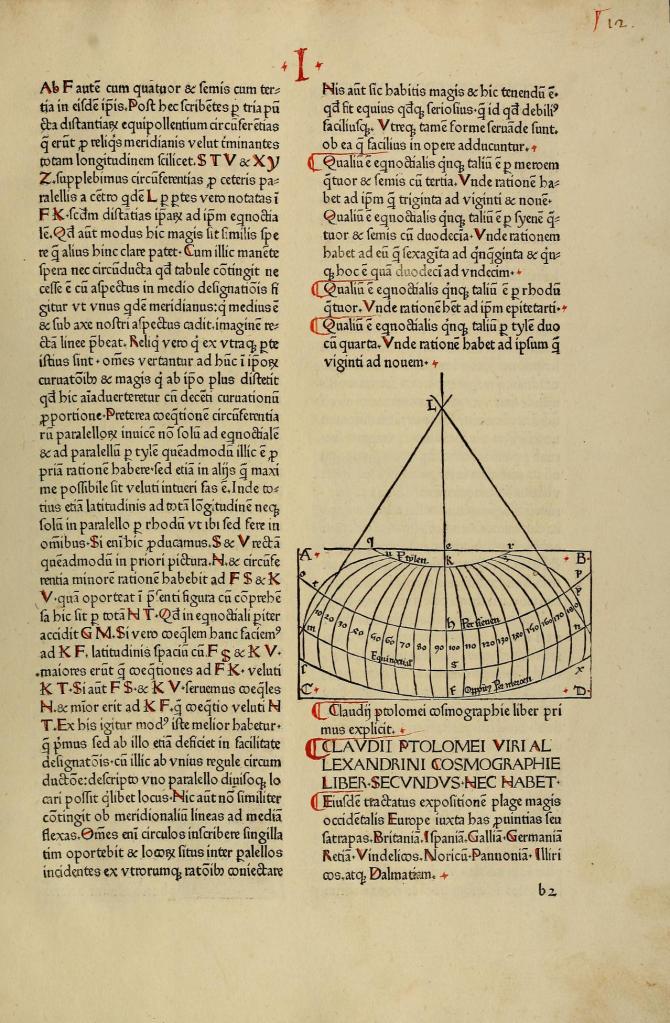 12.
I
Ab F autē cum quatuor & semis cum ter-
tia in eisdē ip̄is. Post hec scribētes p̱ tria pū
cta distantiaꝝ equipollentium circūferētias
q̄ erūt ꝓ reliqis meridianis velut t̄minantes
totam longitudinem scilicet. S T V & X Y
Z. supplebimus circūferentias ꝓ ceteris pa-
ralellis a cētro qdē L p̱ p̱tes vero notatas ī
F K. scdm distātias ip̄aꝝ ad ip̄m eqnoctia
lē. Qd aūt modus hic magis sit similis spe
re q̄ alius hinc clare patet. Cum illic manēte
spera nec circūducta qd tabule cōtingit ne
cesse ē cū aspectus in medio designatiōis fi
gitur vt vnus qdē meridianus: q̄ medius ē
& sub axe nostri aspectus cadit. imaginē re-
cta linee p̄beat. Reliq̄ vero q̄ ex vtraq̨ p̱te
istius sunt. om̄es vertantur ad hūc ī ip̄oꝝ
curuatōib9 & magis q̄ ab ip̄o plus distetit
qd hic aīaduerteretur cū decēti curuationū
ꝓportione. Preterea coeq̄tionē circūferentia
rū paralelloꝝ inuicē nō solū ad eqnoctialē
& ad paralellū p̱ tylē quēadmodū illic ē ꝓ
priā rationē habere. sed etiā in alijs q̄ maxi
me possibile sit veluti intueri fas ē. Inde to-
tius etiā latitudinis ad totā lōgitudinē neq̨
solū in paralello p̱ rhodū vt ibi sed fere in
om̄ibus. Si eni hic ꝓducamus. S & V rectā
queādmodū in priori pictura. H. & circūfe
rentia minorē rationē habebit ad F S & K
V. quā oporteat ī p̄senti figura cū cōprehē
sa hic sit p̱ totā H T. Qd in eqnoctiali p̱iter
accidit G M. Si vero coeq̄lem hanc faciem9
ad K F, latitudinis spaciū cū. F S & K V.
maiores erūt q̄ coeq̄tiones ad F K. veluti
K T. Si aūt F S. & K V. seruemus coeq̄les
H. & mior erit ad K F. q̄ coeq̄tio veluti H
T. Ex his igitur mod9 iste melior habetur.
q̄ p̄mus sed ab illo etiā deficiet in facilitate
designatōis. cū illic ab vnius regule circum
ductōe: descripto vno paralello diuisoq̨ lo
cari possit q̄libet locus. Hic aūt nō similiter
cōtingit ob meridionaliū lineas ad mediā
flexas. Om̄es eni circulos inscribere singilla
tim oportebit & locoꝝ situs inter p̱alellos
incidentes ex vtrorumq̨ ratōib9 coniectare
His aūt sic habitis magis & hic tenendū ē.
qd sit equius qdq̨ seriosius. q̄ id qd debili9
faciliusq̨. Vtreq̨ tamē forme seruāde sunt.
ob ea q̄ facilius in opere adducuntur.
Qualiū ē eqnoctialis qnq̨ taliū ē p̱ meroem
q̄tuor & semis cū tertia. Vnde rationē ha-
bet ad ip̄m q̄ triginta ad viginti & nouē.
Qualiū ē eqnoctialis qnq̨ taliū ē p̱ syenē q̄-
tuor & semis cū duodecīa. Vnde rationem
habet ad eū q̄ sexagīta ad qnqginta & qn-
q̨ hoc ē quā duodecī ad vndecim.
Qualiū ē eqnoctialis qnq̨ taliū ē p̱ rhodū
q̄tuor. Vnde rationē hēt ad ip̄m epitetarti.
Qualiū ē eqnoctialis qnq̨ taliū p̱ tylē duo
cū quarta. Vnde rationē habet ad ipsum q̄
viginti ad nouem.
L
A q e r B
u P tylen. k
o t p p
10 20 30 40 60 70 80 90 100 110 120 130 140 150 160 170 180
h Per sienen
m n
Equinoctial g
l x
C F Oppīū Per meroen D
Claudij ptolomei cosmographie liber pri
mus explicit.
CLAVDII PTOLOMEI VIRI AL
LEXANDRINI COSMOGRAPHIE
LIBER SECVNDVS HEC HABET.
Eiusdē tractatus expositionē plage magis
occidētalis Europe iuxta has ꝓuintias seu
satrapas. Britaniā. Ispaniā. Galliā. Germaniā
Retiā. Vindelicos. Noricū. Pannoniā. Illiri
cos. atq̨ Dalmatiam.
b2